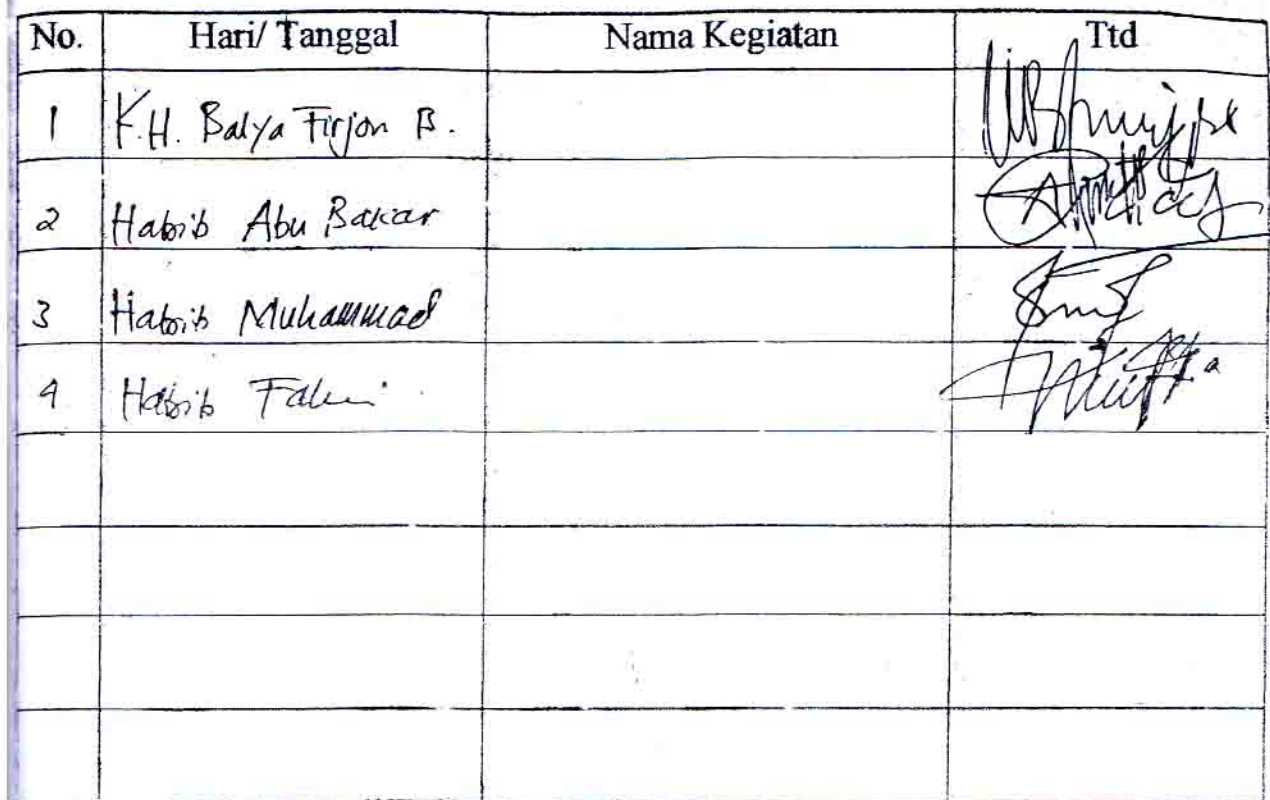 No. Hari/ Tanggal Nama Kegiatan Ttd
1 K.H. Balya Firjon B.
2 Habib Abu Bakar
3 Habib Muhammad
4 Habib